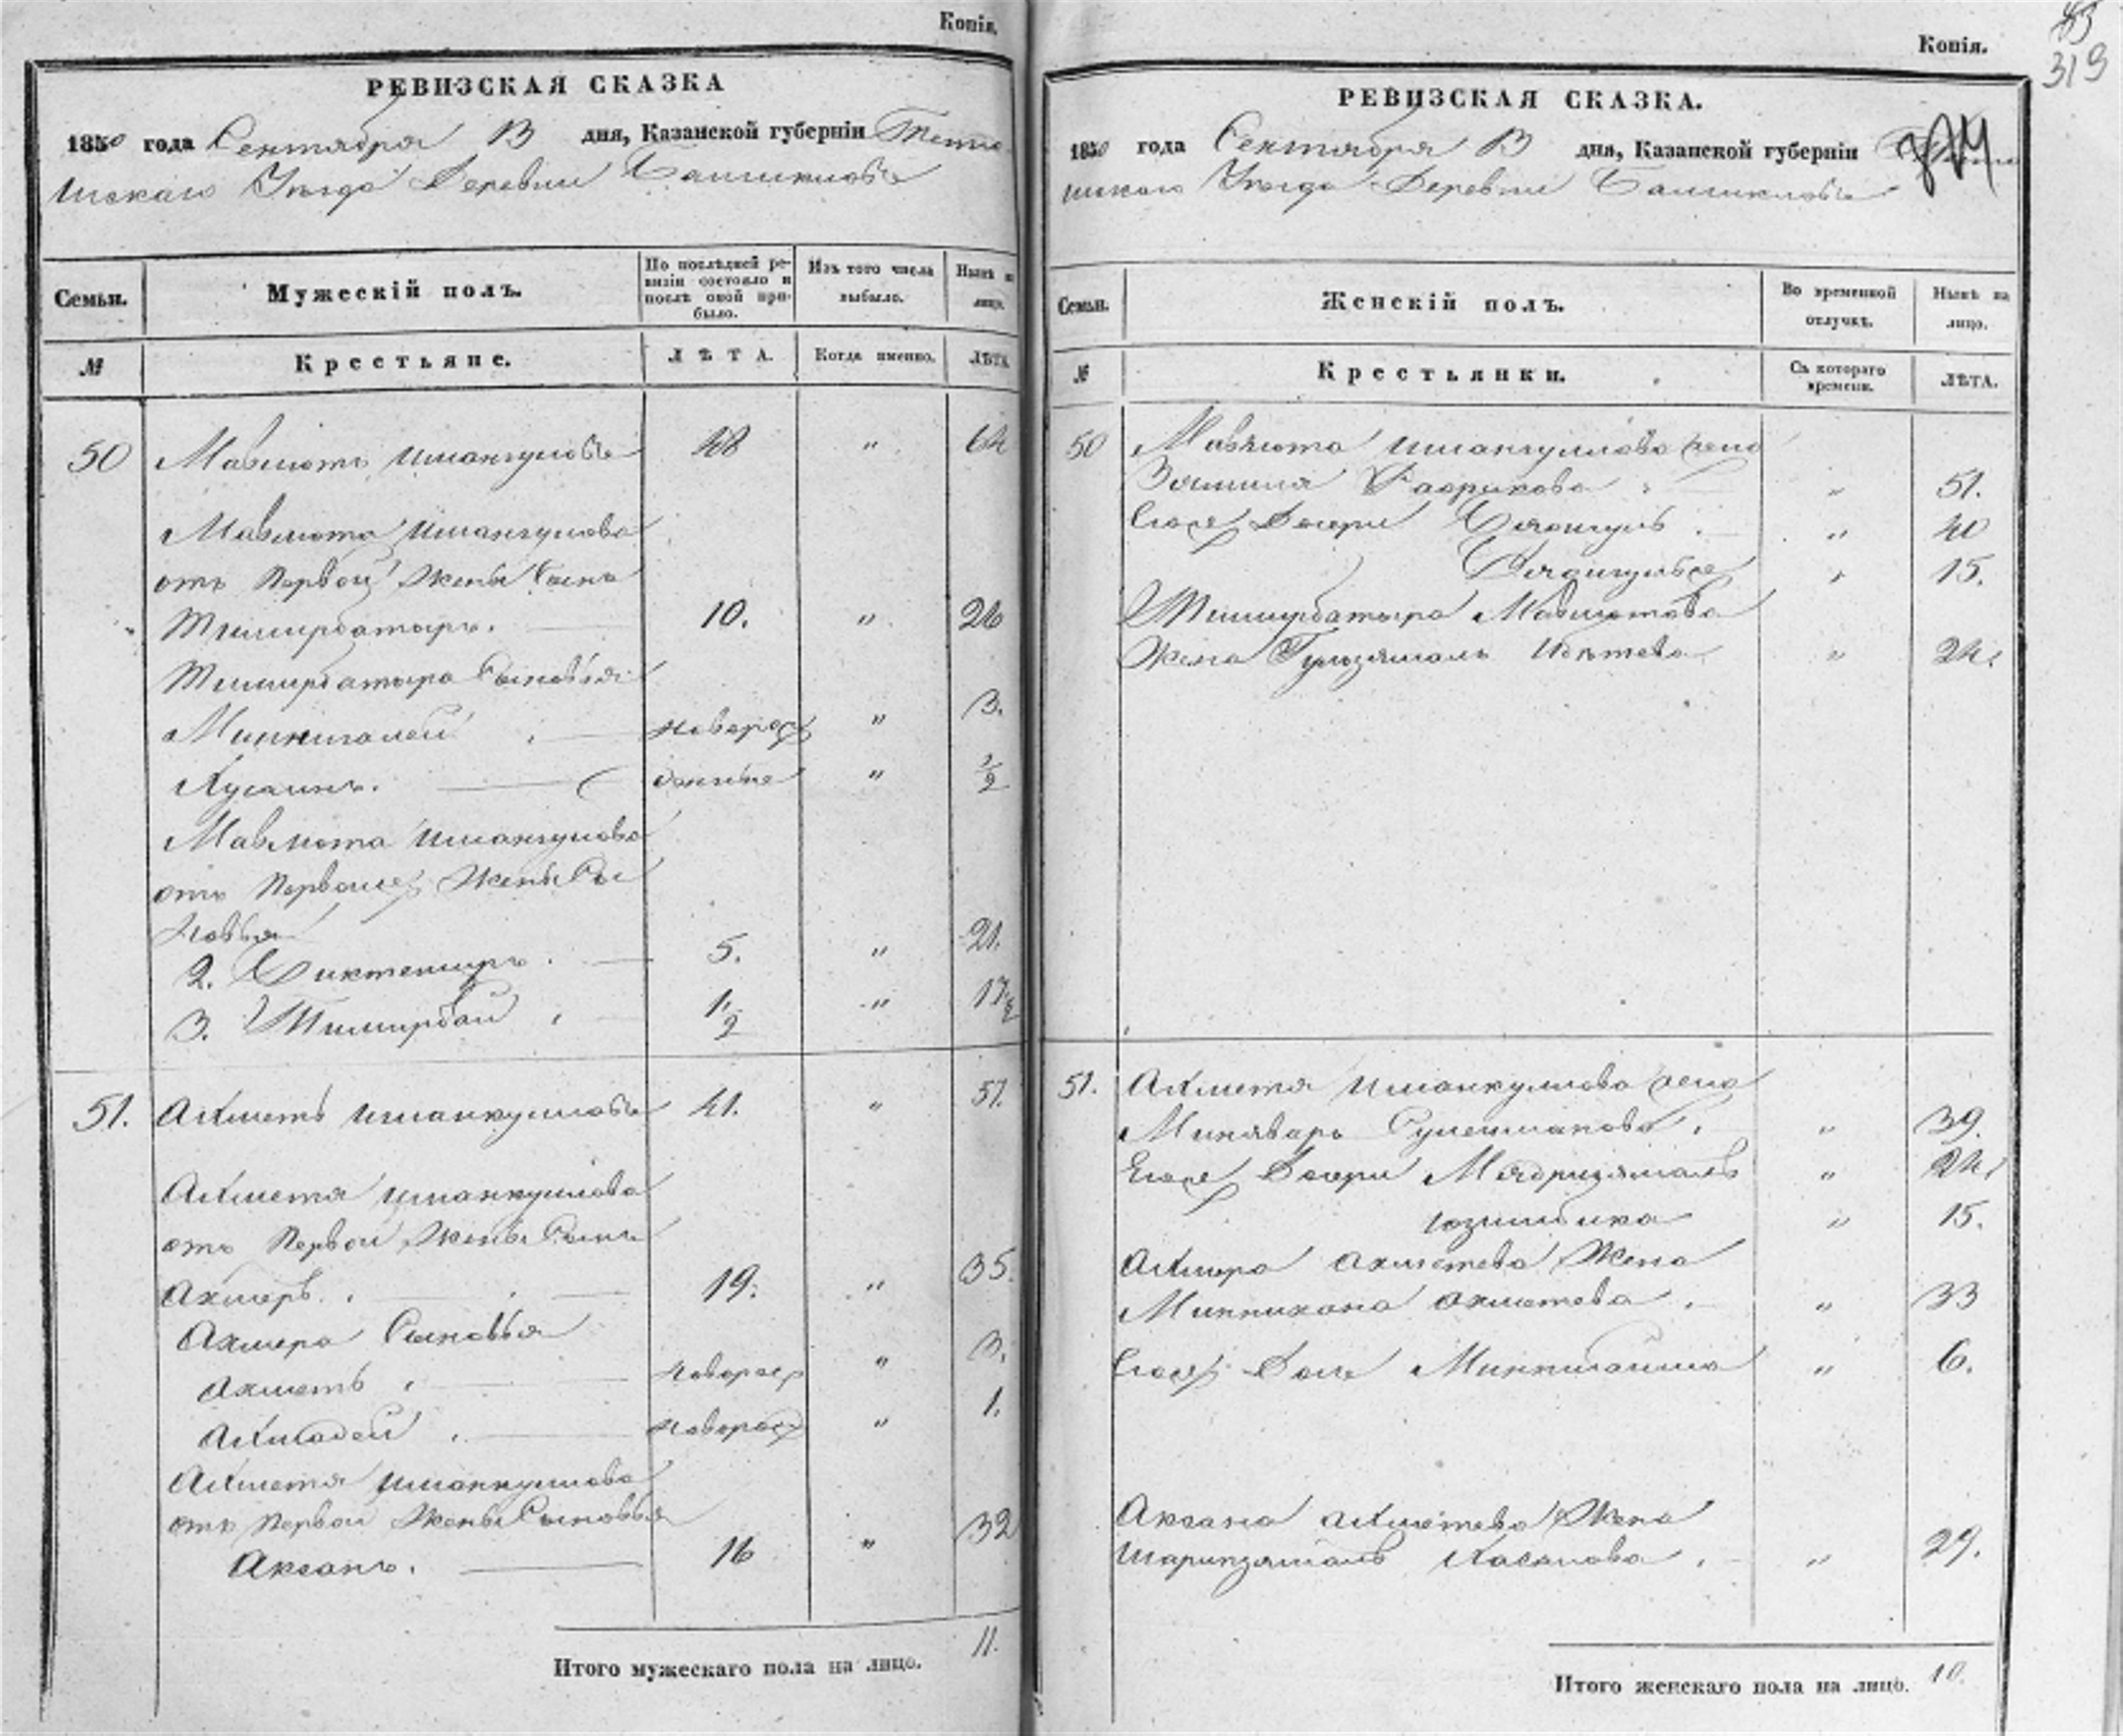 Копія.
РЕВИЗСКАЯ СКАЗКА
1850 года Сентября 13 дня, Казанской губерніи Тетю-
шскаго Уѣзда Деревни
Семьи. Мужескій полъ. По послѣдней ре-визіи состояло и послѣ оной при-было. Изъ того числа выбыло. Нынѣ на лицо.
№ Крестьяне. ЛѢТА. Когда именно. ЛѢТА.
50 Мавлютъ Имангуловъ 48 " 64
Мавлюта Имангулова
отъ Первой Жены Сынъ
Тимирбатыръ. 10. " 26
Тимирбатыра Сыновья
Миннигалей новорож " 3.
Хусаинъ. " 1/2
Мавлюта Имангулова
отъ Первой же Жены Сы
новья
2. Биктемиръ. 5. " 21.
3. Тимирбай 1/2 "
51. Ахметъ Иманкуловъ 41. " 57.
Ахметя Иманкулова
отъ Первой Жены Сынъ
Ахмеръ. 19. " 35.
Ахмера Сыновья
Ахметь новорож " 3.
Ахмадей новорож " 1.
Ахметя Иманкулова
отъ Первой Жены Сыновья
Аксанъ. 16 " 32
Итого мужескаго пола на лицо. 11.
Копія.
319
РЕВИЗСКАЯ СКАЗКА.
1850 года Сентября 13 дня, Казанской губерніи
шскаго Уѣзда Деревни
Семьи. Женскій полъ. Во временной отлучкѣ. Нынѣ на лицо.
№ Крестьянки. Съ котораго времени. ЛѢТА.
50 Мавлюта Имангулова жена
" 51.
Его же Дочери " 40
" 15.
Тимирбатыра Мавлютова
Жена Гульзямаль " 24.
51. Ахметя Иманкулова жена
Миняваръ Сулеманова. " 39.
Его же Дочери " 24.
" 15.
Ахмера Ахметева Жена
Миннихана Ахметева. " 33
Его же Дочь " 6.
Аксана Ахметева Жена
Шарипзямаль Хасанова. " 29.
Итого женскаго пола на лицо. 10.